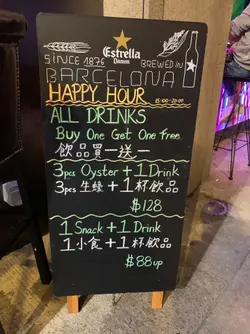 Estrella
Damm
SINCE 1876
BREWED IN
BARCELONA
HAPPY HOUR
15:00-20:00
ALL DRINKS
Buy One Get One free
飲品買一送一
3pcs Oyster + 1 Drink
3pcs 生蠔 + 1杯飲品
$128
1 Snack + 1 Drink
1小食 + 1杯飲品
$88up